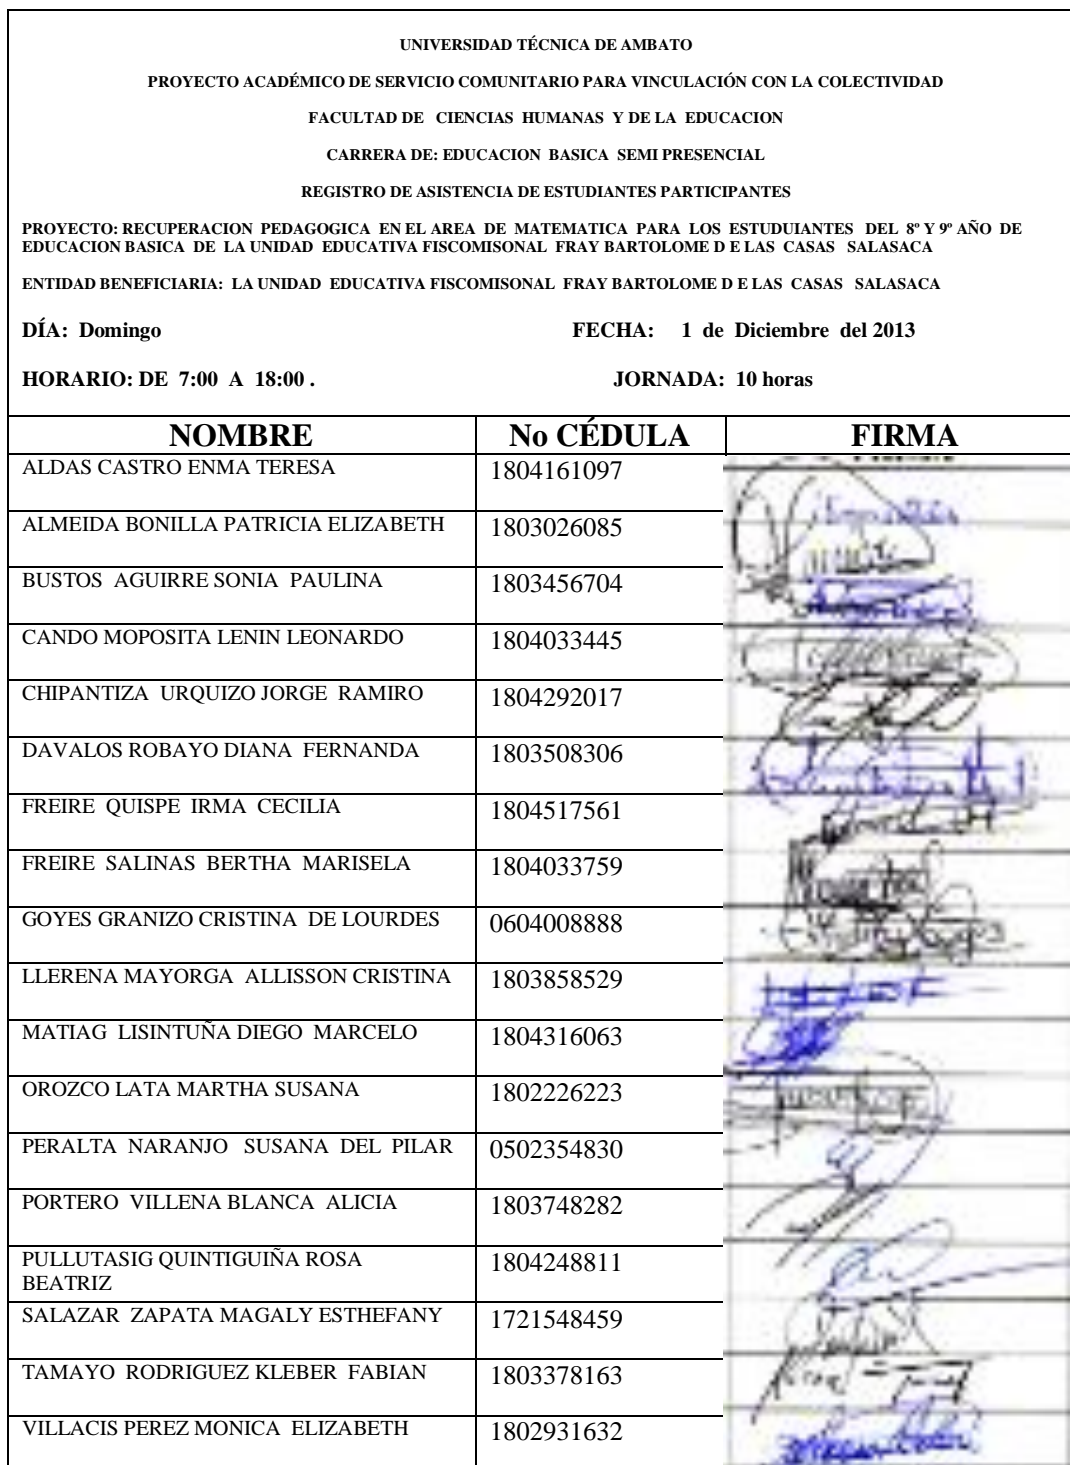 UNIVERSIDAD TÉCNICA DE AMBATO
PROYECTO ACADÉMICO DE SERVICIO COMUNITARIO PARA VINCULACIÓN CON LA COLECTIVIDAD
FACULTAD DE CIENCIAS HUMANAS Y DE LA EDUCACION
CARRERA DE: EDUCACION BASICA SEMI PRESENCIAL
REGISTRO DE ASISTENCIA DE ESTUDIANTES PARTICIPANTES
PROYECTO: RECUPERACION PEDAGOGICA EN EL AREA DE MATEMATICA PARA LOS ESTUDUIANTES DEL 8º Y 9º AÑO DE
EDUCACION BASICA DE LA UNIDAD EDUCATIVA FISCOMISONAL FRAY BARTOLOME D E LAS CASAS SALASACA
ENTIDAD BENEFICIARIA: LA UNIDAD EDUCATIVA FISCOMISONAL FRAY BARTOLOME D E LAS CASAS SALASACA
DÍA: Domingo FECHA: 1 de Diciembre del 2013
HORARIO: DE 7:00 A 18:00 . JORNADA: 10 horas
NOMBRE No CÉDULA FIRMA
ALDAS CASTRO ENMA TERESA 1804161097
ALMEIDA BONILLA PATRICIA ELIZABETH 1803026085
BUSTOS AGUIRRE SONIA PAULINA 1803456704
CANDO MOPOSITA LENIN LEONARDO 1804033445
CHIPANTIZA URQUIZO JORGE RAMIRO 1804292017
DAVALOS ROBAYO DIANA FERNANDA 1803508306
FREIRE QUISPE IRMA CECILIA 1804517561
FREIRE SALINAS BERTHA MARISELA 1804033759
GOYES GRANIZO CRISTINA DE LOURDES 0604008888
LLERENA MAYORGA ALLISSON CRISTINA 1803858529
MATIAG LISINTUÑA DIEGO MARCELO 1804316063
OROZCO LATA MARTHA SUSANA 1802226223
PERALTA NARANJO SUSANA DEL PILAR 0502354830
PORTERO VILLENA BLANCA ALICIA 1803748282
PULLUTASIG QUINTIGUIÑA ROSA 1804248811
BEATRIZ
SALAZAR ZAPATA MAGALY ESTHEFANY 1721548459
TAMAYO RODRIGUEZ KLEBER FABIAN 1803378163
VILLACIS PEREZ MONICA ELIZABETH 1802931632